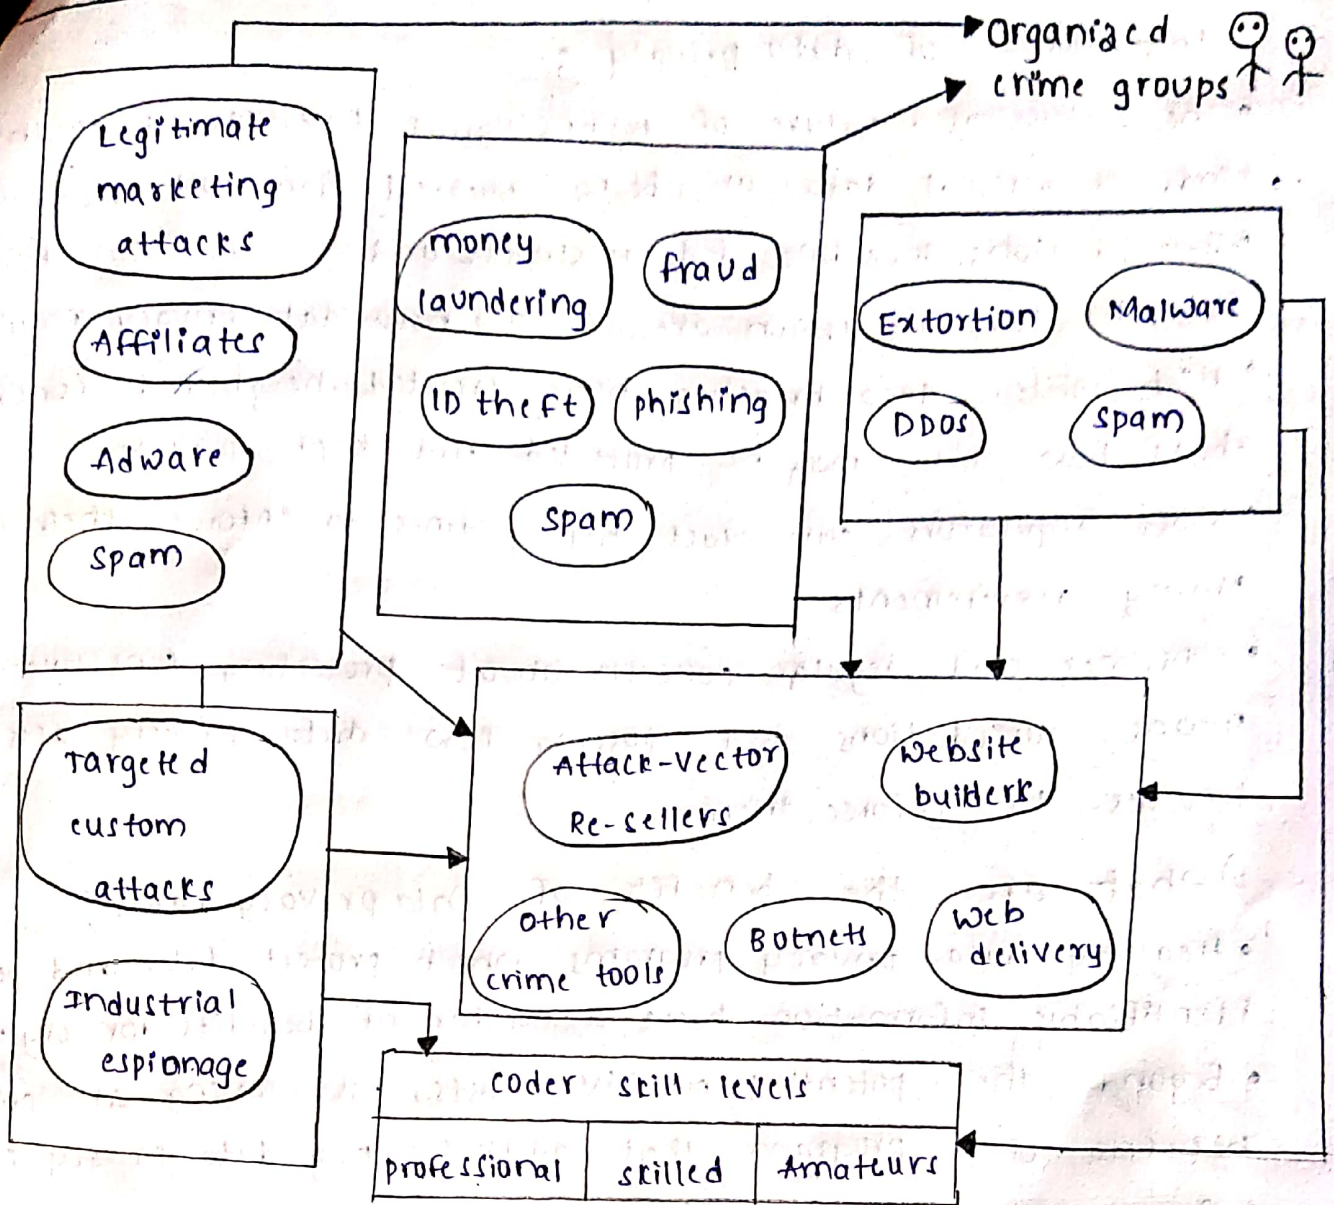 Organized
crime groups
Legitimate
marketing
attacks
Affiliates
Adware
Spam
money
laundering
fraud
ID theft
phishing
Spam
Extortion
Malware
DDOS
Spam
Targeted
custom
attacks
Industrial
espionage
Attack-Vector
Re-sellers
Website
builders
other
crime tools
Botnets
Web
delivery
coder skill levels
professional
skilled
Amateurs